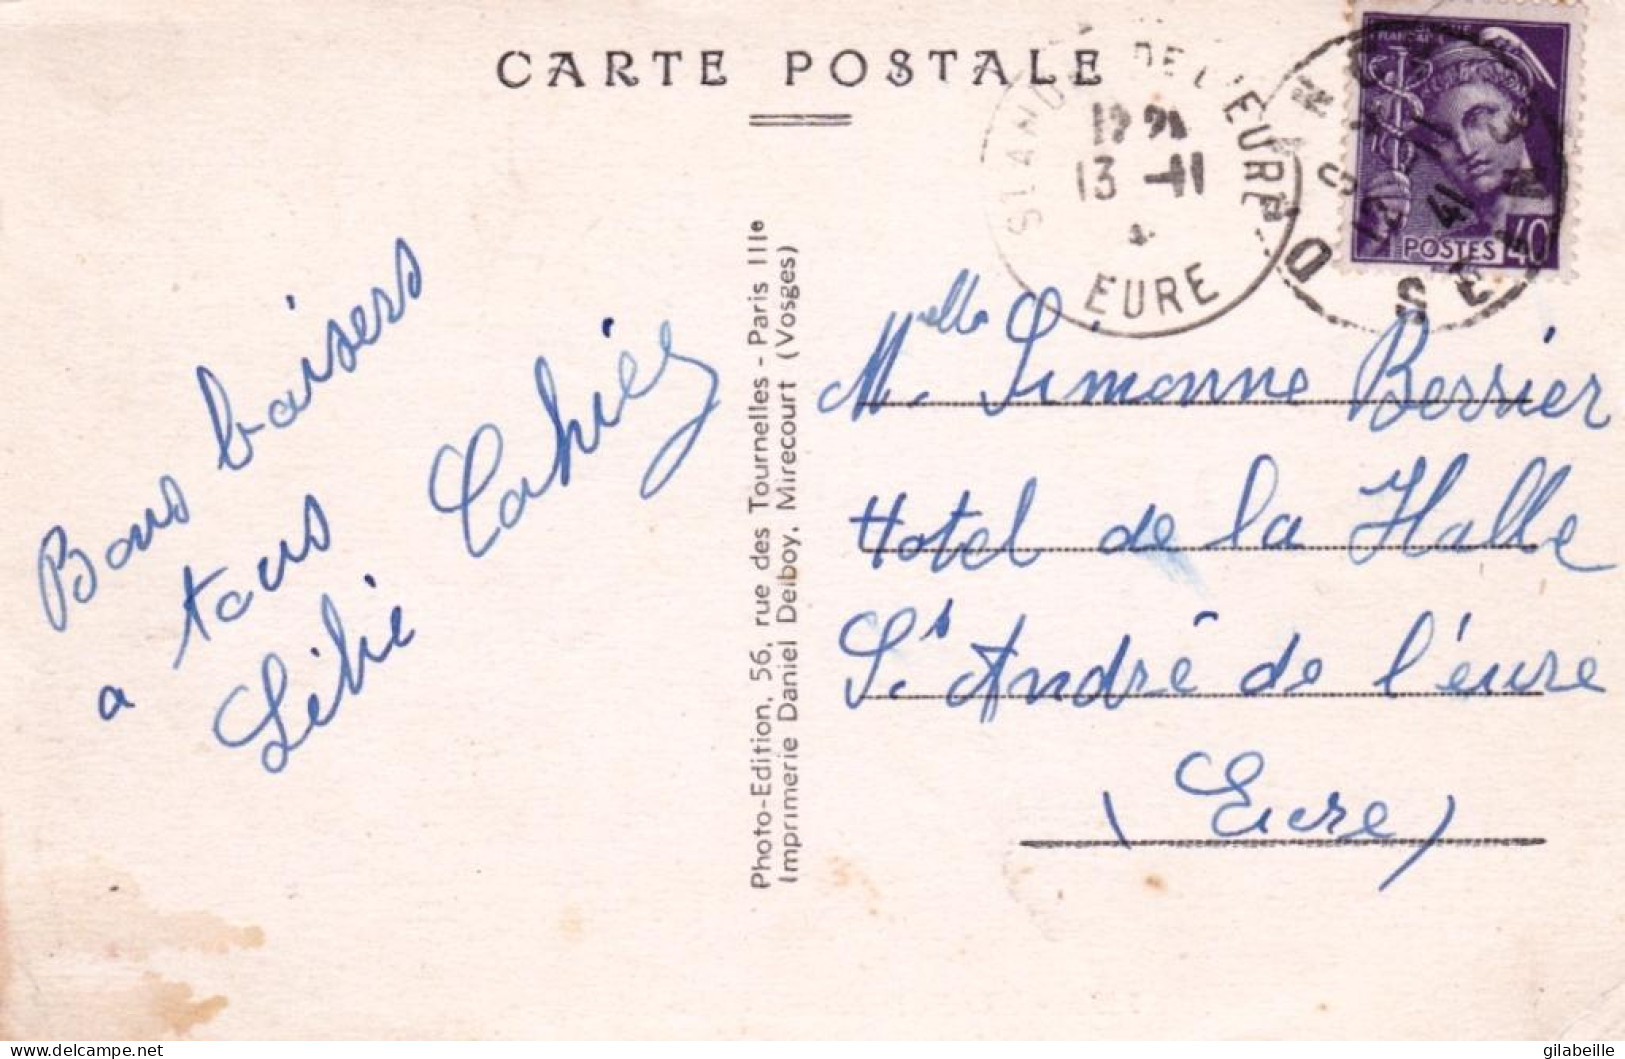 CARTE POSTALE
ST ANDRÉ DE L'EURE
13 -11
EURE
12 -11
41
POSTES 40
Bons baisers
a tous
Lilie Cahiez
Photo-Edition, 56, rue des Tournelles - Paris IIIe
Imprimerie Daniel Delboy, Mirecourt (Vosges)
Melle Simonne Bessier
Hotel de la Halle
St André de l'eure
(Eure)
gilabeille